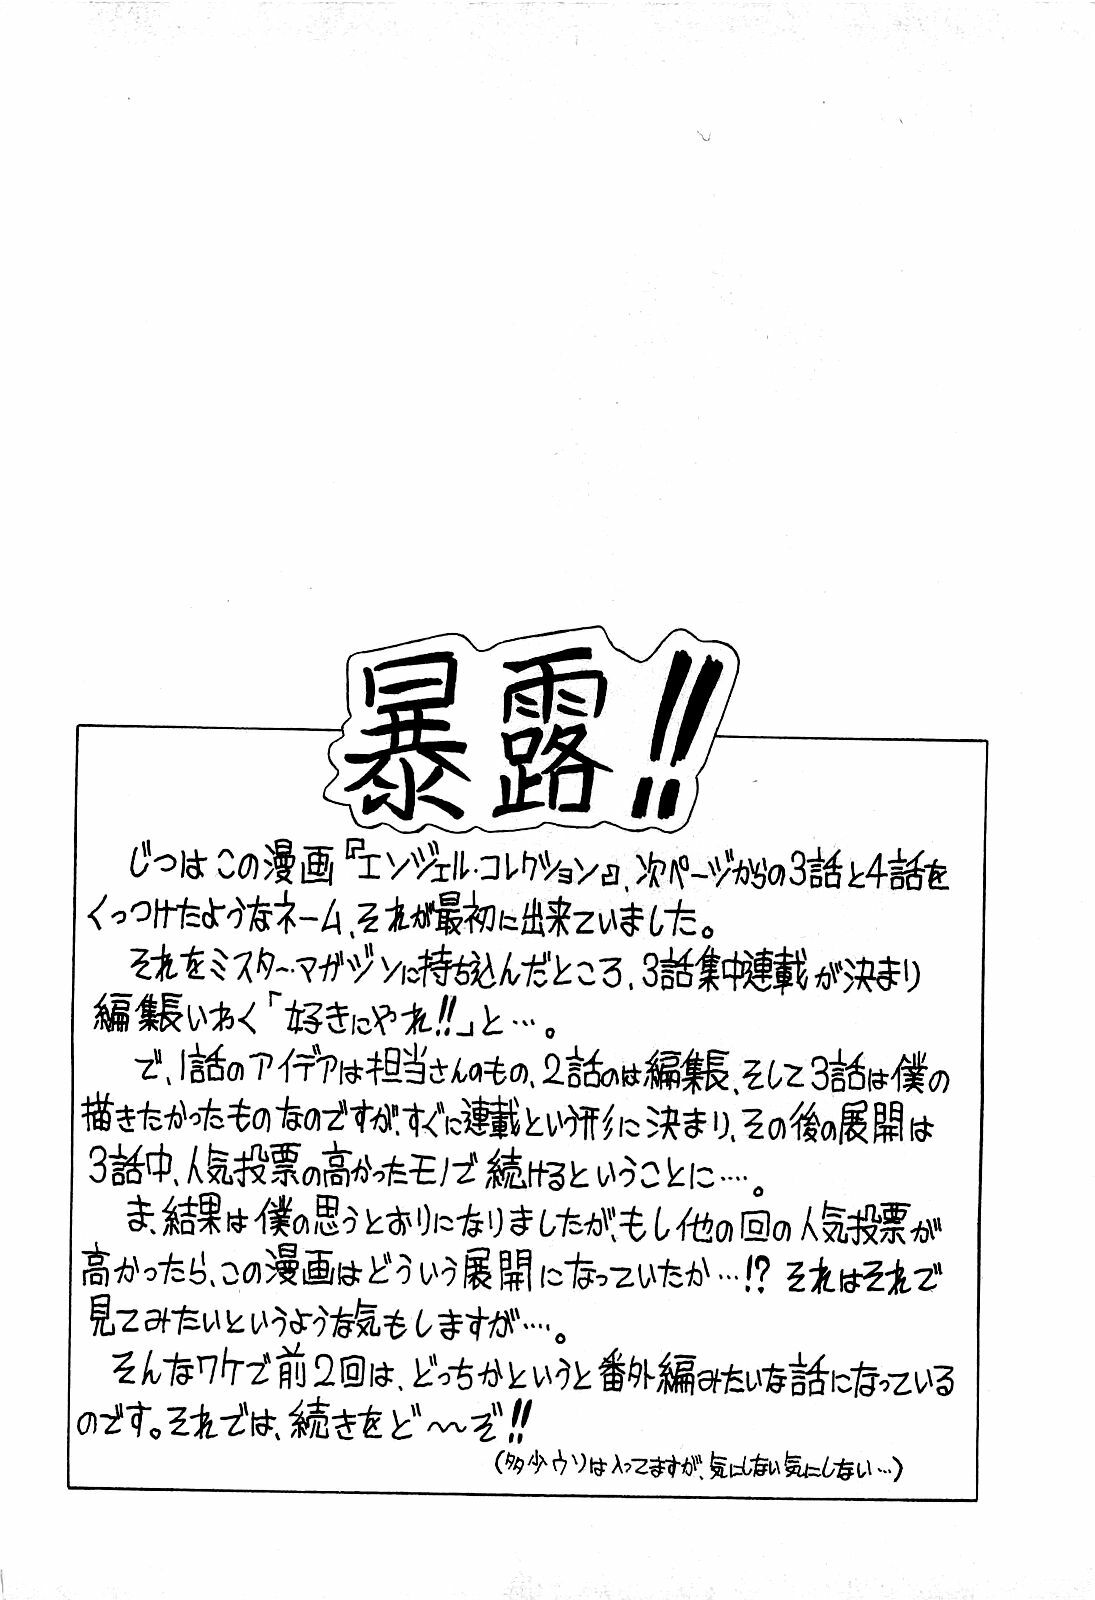 暴露!!
じつはこの漫画『エンジェル・コレクション』、次ページからの3話と4話を
くっつけたようなネーム、それが最初に出来ていました。
それをミスター・マガジンに持ち込んだところ、3話集中連載が決まり
編集長いわく「好きにやれ!!」と…。
で、1話のアイデアは担当さんのもの、2話のは編集長、そして3話は僕の
描きたかったものなのですが、すぐに連載という形に決まり、その後の展開は
3話中、人気投票の高かったモノで続けるということに…。
ま、結果は僕の思うとおりになりましたが、もし他の回の人気投票が
高かったら、この漫画はどういう展開になっていたか…!? それはそれで
見てみたいというような気もしますが…。
そんなワケで前2回は、どっちかというと番外編みたいな話になっている
のです。それでは、続きをど〜ぞ!!
(多少ウソは入ってますが、気にしない気にしない…)